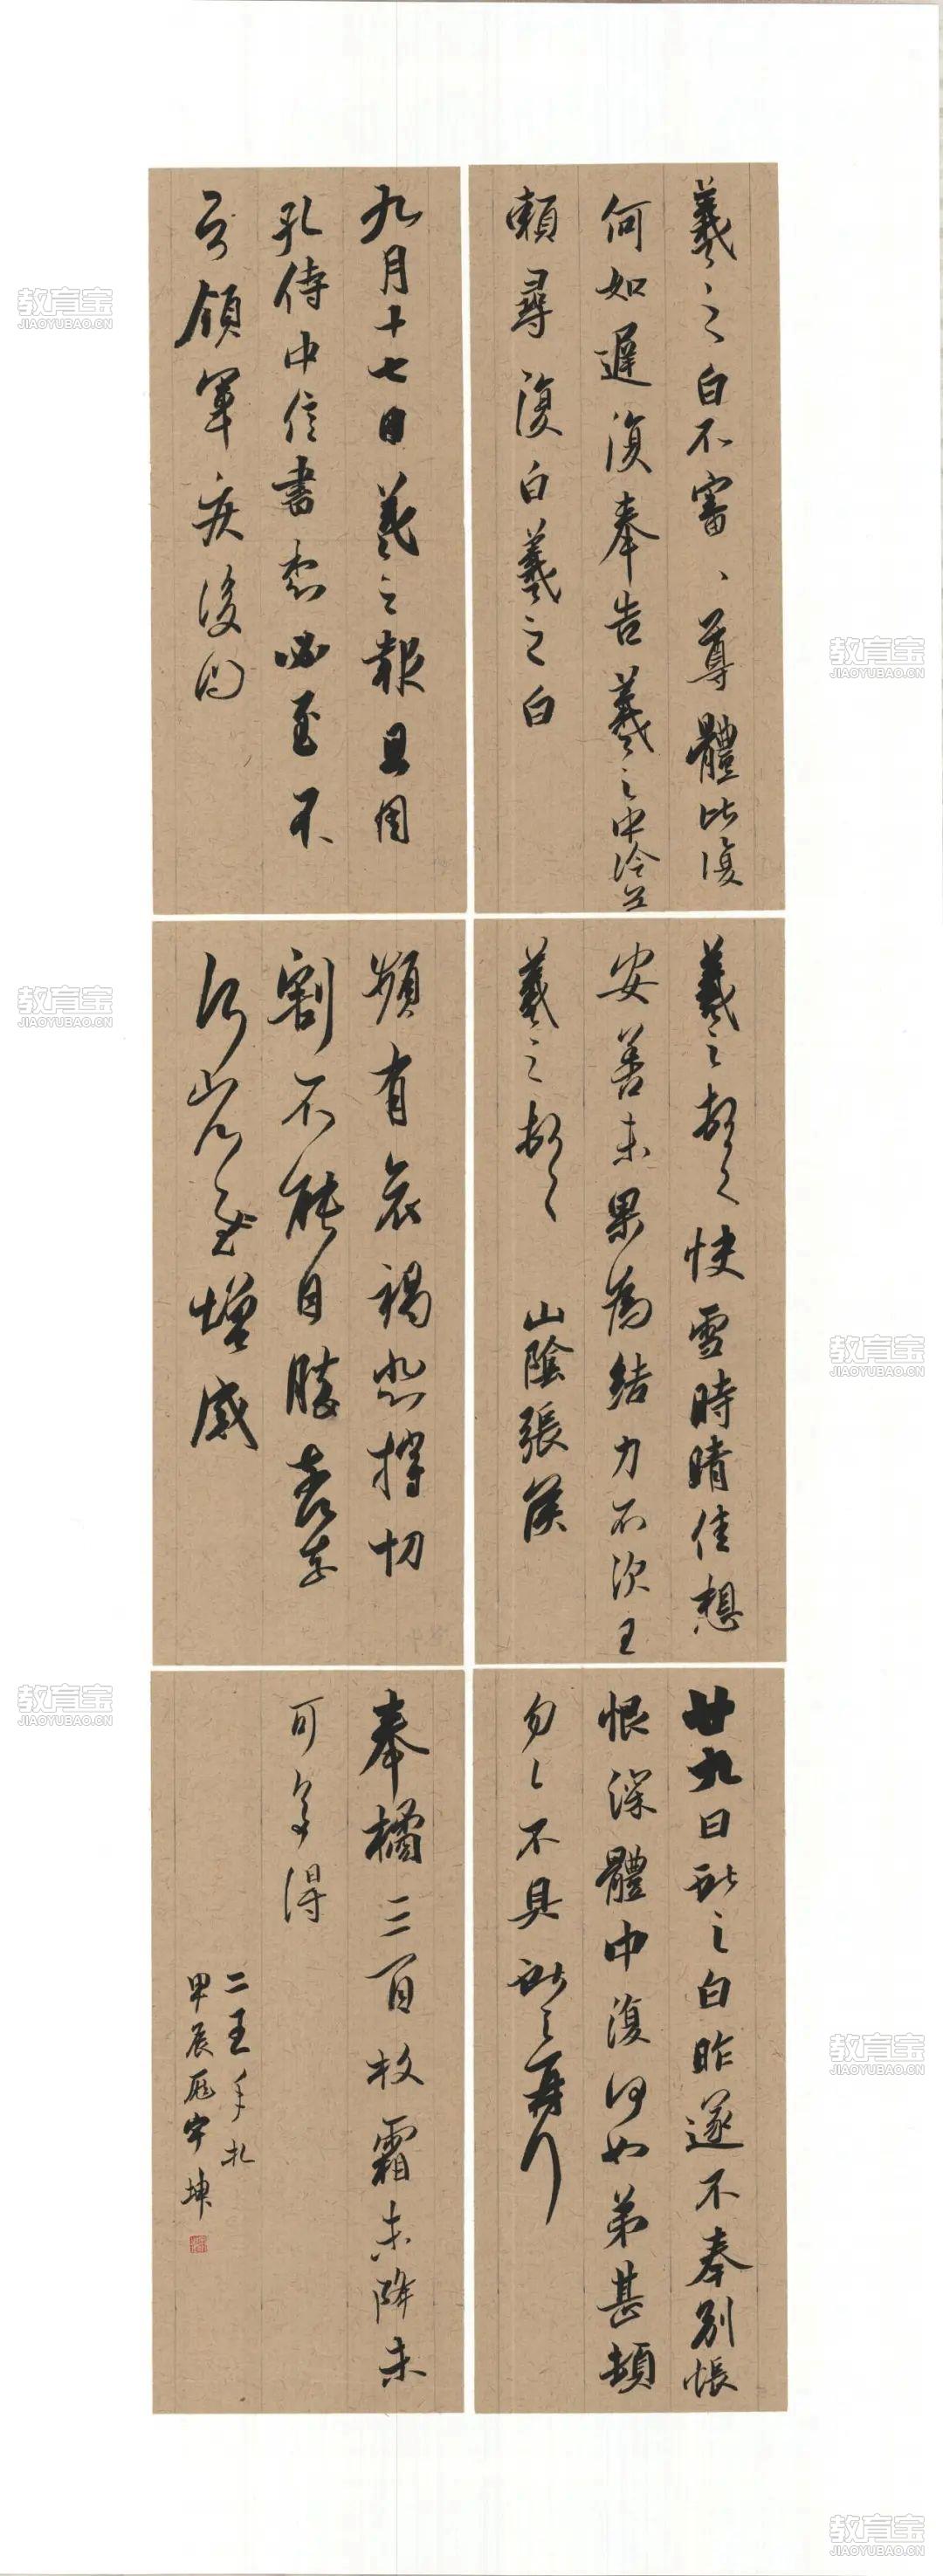 羲之白不審、尊體比復
何如遲復奉告羲之中冷無
賴尋復白羲之白
羲之頓首快雪時晴佳想
安善未果為結力不次王
羲之頓首
山陰張侯
廿九日獻之白昨遂不奉別悵
恨深體中復何如弟甚頓
勿々不具獻之再拜
九月十七日羲之報且因
孔侍中信書想必至不
知領軍疾後問
頻有哀禍悲摧切
割不能自勝奈何
奈何省慰增感
奉橘三百枚霜未降未
可多得
二王手札
甲辰
宇坤
教育宝
JIAOYUBAO.CN
教育宝
JIAOYUBAO.CN
教育宝
JIAOYUBAO.CN
教育宝
JIAOYUBAO.CN
教育宝
JIAOYUBAO.CN
教育宝
JIAOYUBAO.CN
教育宝
JIAOYUBAO.CN